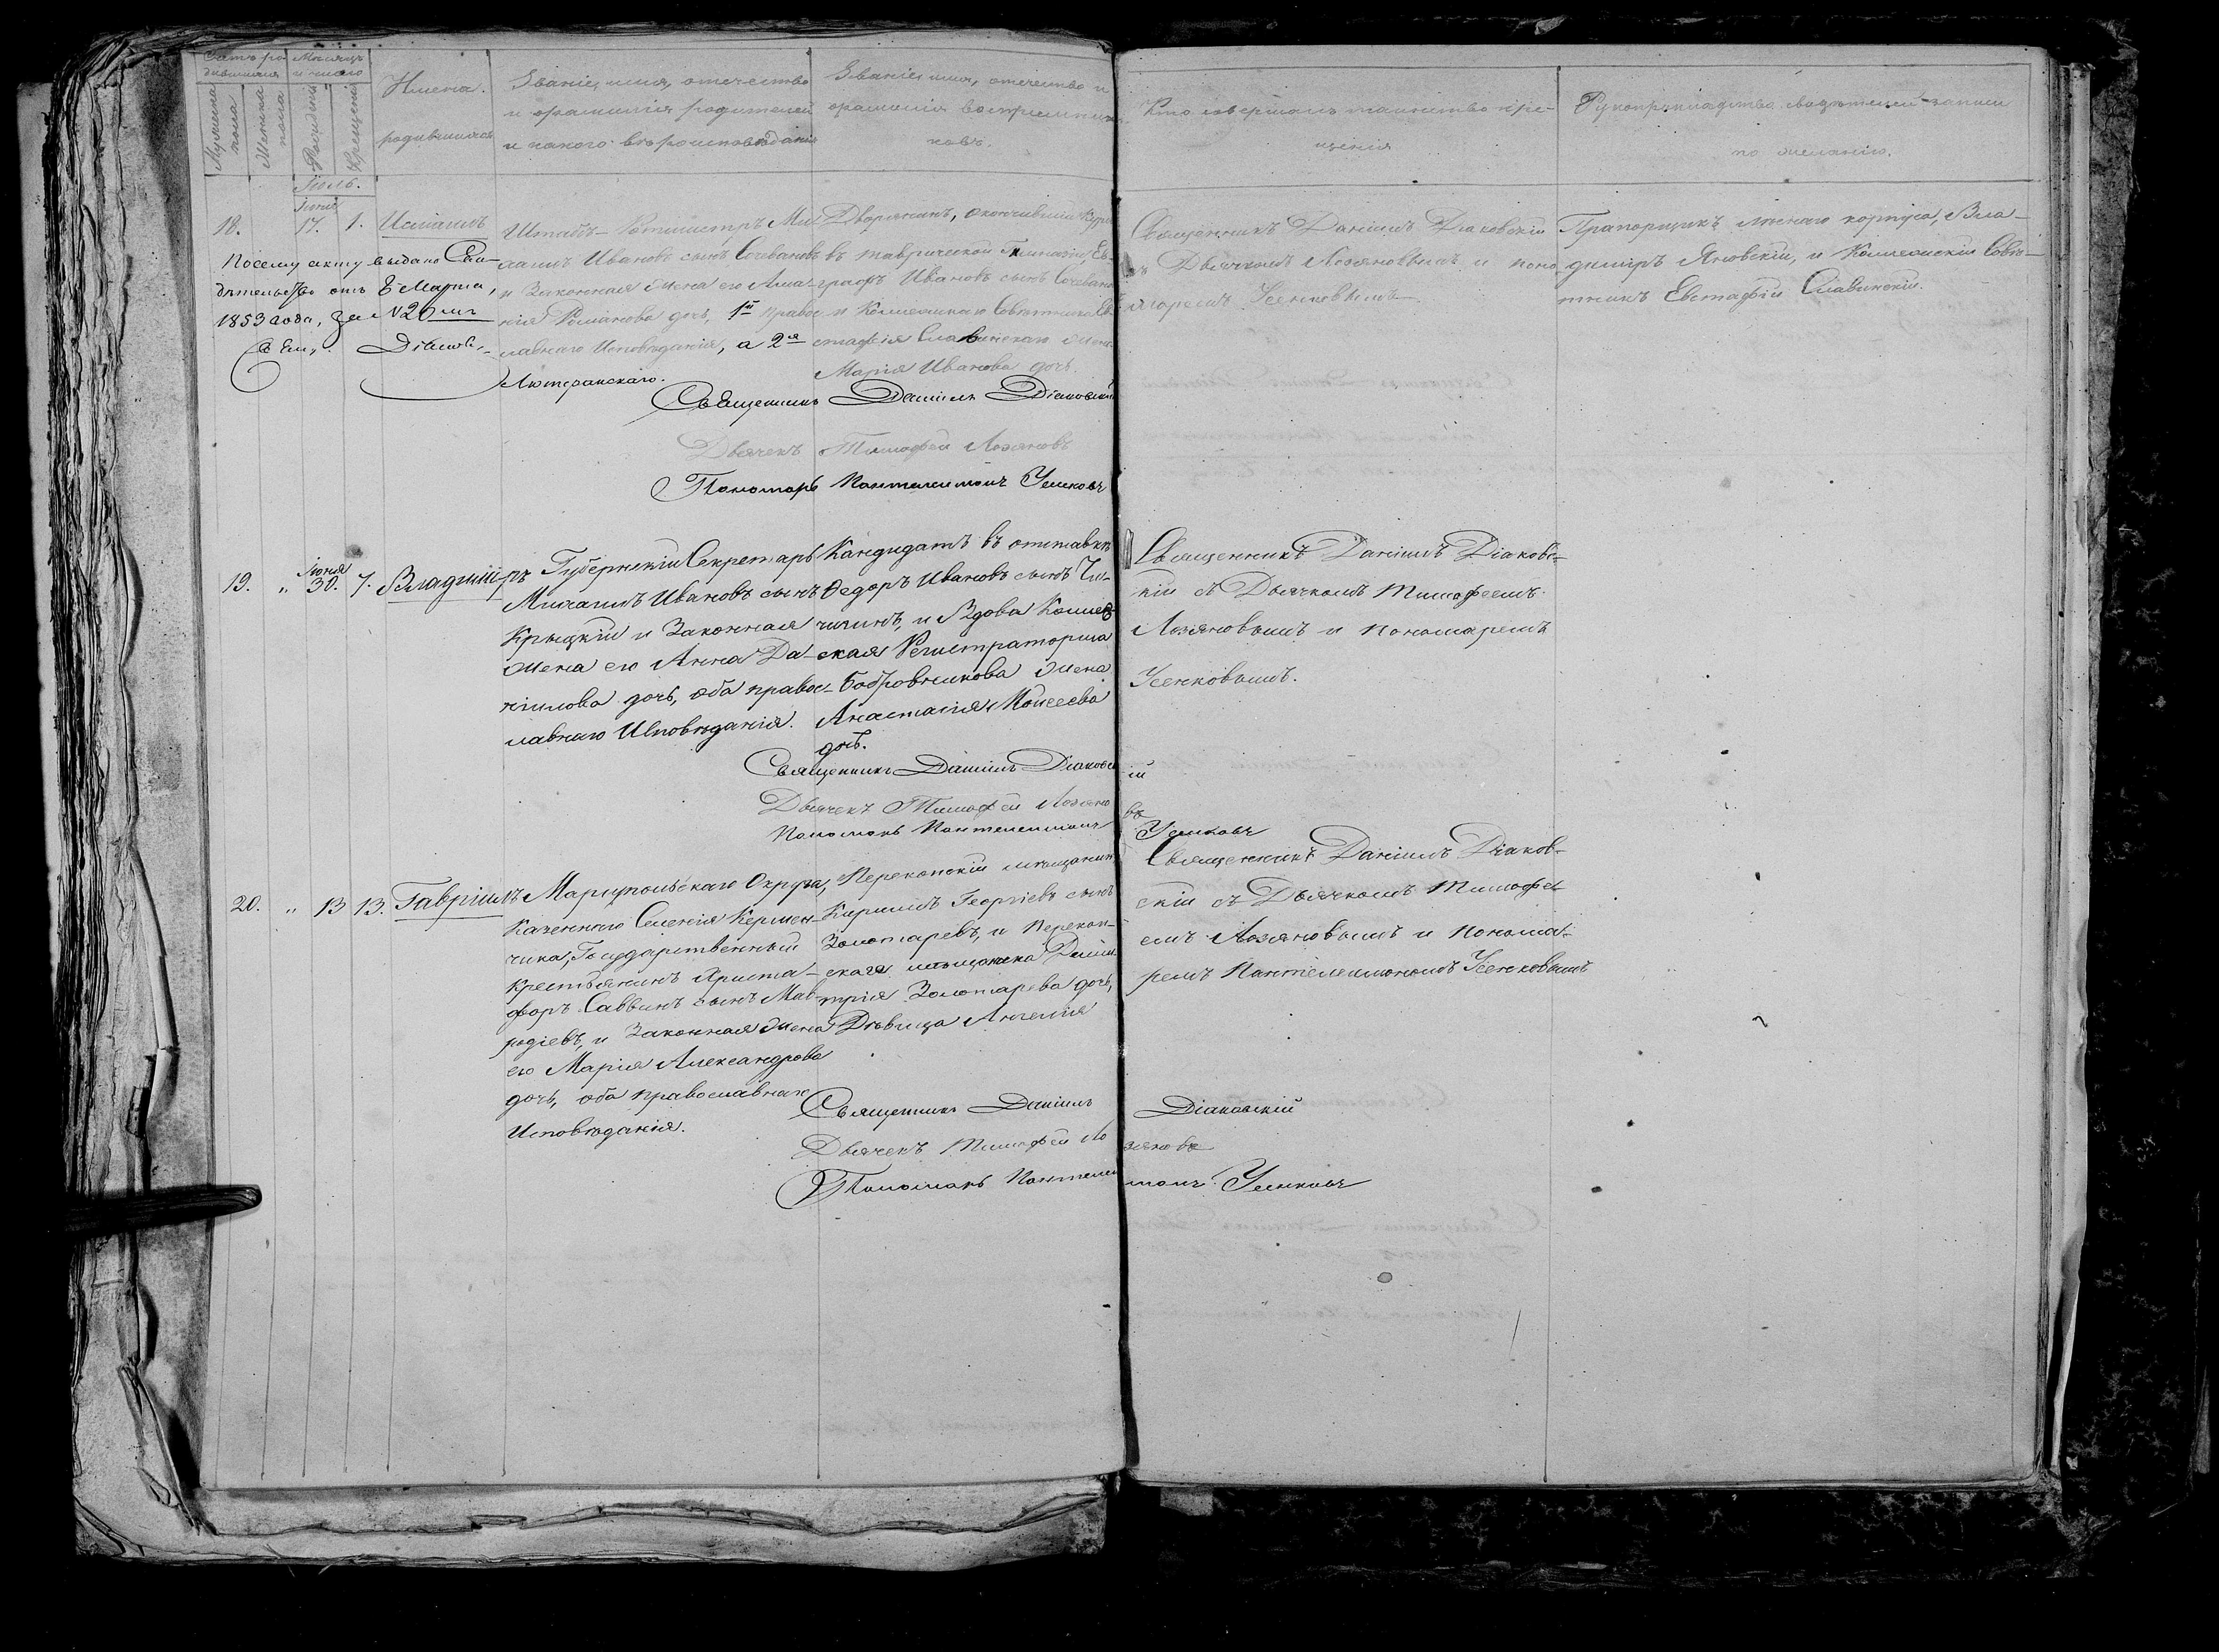 Счетъ ро-
дившихся
Мѣсяцъ
и число
Мужеска
пола
Женска
пола
Рожденія
Крещенія
Имена
родившихся
Званіе, имя, отечество
и фамилія родителей
и какого вѣроисповѣданія
Званіе, имя, отечество и
фамилія воспріемни-
ковъ.
Кто совершалъ таинство кре-
щенія
Рукоприкладство свидѣтелей записи
по желанію.
Іюль.
Іюня
18. 17. 1.
По сему акту выдано Сви-
дѣтельство отъ 8 Марта,
1853 года, за №26
Штабъ-Ротмистръ Ми-
хаилъ Ивановъ сынъ
и Законная жена его Ама-
лія Романова дочь, 1й право-
славнаго Исповѣданія, а 2я
Лютеранскаго.
Дворянинъ, окончившій курсъ
въ таврической Гимназіи, Ев-
графъ Ивановъ сынъ
и Коллежскаго Совѣтника Ев-
стафія Славинскаго жена
Марія Иванова дочь.
Священникъ Даніилъ Діаковскій
съ Дьячкомъ Лозяновымъ и поно-
маремъ Усенковымъ
Прапорщикъ лѣснаго корпуса, Вла-
диміръ Яновскій, и Коллежскій Совѣ-
тникъ Евстафій Славинскій.
Священникъ Даніилъ Діаковскій
Дьячекъ Тимофей Лозяновъ
Пономарь Пантелеимонъ Усенковъ
19. " Іюня 30. 7. Владимі-ръ
Губернскій Секретарь
Михаилъ Ивановъ сынъ
Крыцкій и Законная
жена его Анна Да-
ніилова дочь, оба право-
славнаго Исповѣданія.
Кандидатъ въ отставкѣ
Федоръ Ивановъ сынъ Чи-
чилинъ, и Вдова Коллеж-
ская Регистраторша
Бобровникова жена
Анастасія Моисеева
дочь.
Священникъ Даніилъ Діаков-
скій съ Дьячкомъ Тимофеемъ
Лозяновымъ и пономаремъ
Усенковымъ.
Священникъ Даніилъ Діаковскій
Дьячекъ Тимофей Лозяновъ
Пономарь Пантелеимонъ Усенковъ
20. " 13 13. Гавріилъ
Маріупольскаго Округа,
Казеннаго Селенія Кермен-
чика, Государственный
крестьянинъ Христо-
форъ Саввинъ сынъ Мав-
родіевъ, и Законная жена
его Марія Александрова
дочь, оба православнаго
Исповѣданія.
Перекопскій мѣщанинъ
Кириллъ Георгіевъ сынъ
Золотаревъ, и Перекоп-
скаго мѣщанина Дими-
трія Золотарева дочь,
Дѣвица Ангелія
Священникъ Даніилъ Діаков-
скій съ Дьячкомъ Тимофе-
емъ Лозяновымъ и понома-
ремъ Пантелеимономъ Усенковымъ
Священникъ Даніилъ Діаковскій
Дьячекъ Тимофей Лозяновъ
Пономарь Пантелеимонъ Усенковъ